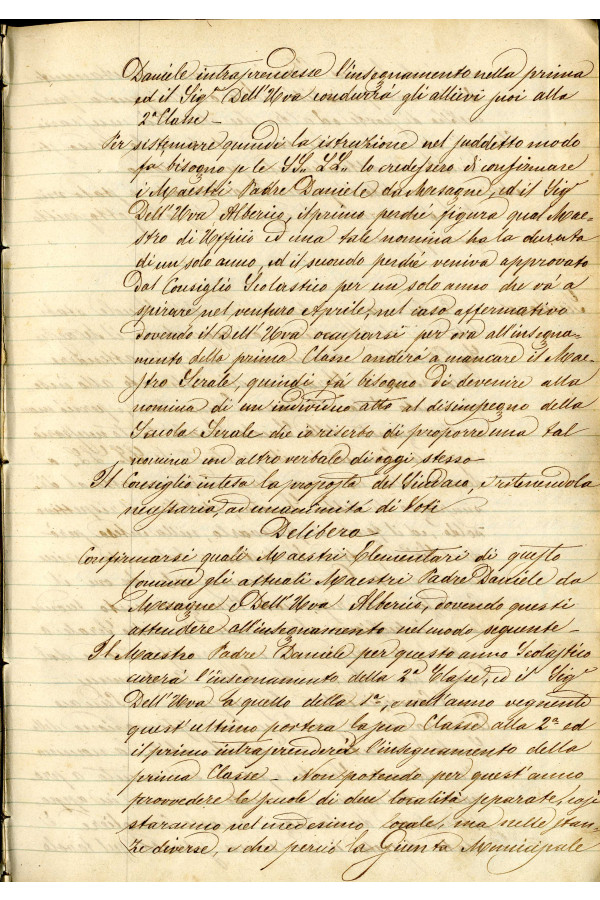 Daniele intraprendesse l'insegnamento nella prima
ed il Sigr Dell'Uva condurrà gli allievi poi alla
2a Classe –
Per sistemare quindi la istruzione nel suddetto modo
fa bisogno pe le SS. LL. lo credessero di confirmare
i Maestri Padre Daniele da Mesagne, ed il Sigr
Dell'Uva Alberico, il primo perchè figura qual Mae=
stro di Uffizio ed una tale nomina ha la durata
di un solo anno, ed il secondo perchè veniva approvato
dal Consiglio Scolastico per un solo anno che va a
spirare nel venturo Aprile, nel caso affermativo
dovendo il Dell'Uva occuparsi per ora all'insegna=
mento della prima Classe anderà a mancare il Mae=
stro Serale, quindi fà bisogno di devenire alla
nomina di un individuo atto al disimpegno della
Scuola Serale che io riserbo di proporre una tal
nomina con altro verbale di oggi stesso –
Il Consiglio intesa la proposta del Sindaco, e ritenendola
necessaria, ad unanimità di Voti
Delibera
Confirmarsi quali Maestri Elementari di questo
Comune gli attuali Maestri Padre Daniele da
Mesagne e Dell'Uva Alberico, dovendo questi
attendere all'insegnamento nel modo seguente –
Il Maestro Padre Daniele per questo anno Scolastico
curerà l'insegnamento della 2a Classe, ed il Sigr
Dell'Uva a quello della 1a, e nell'anno vegnente
quest'ultimo porterà la pria Classe alla 2a ed
il primo intraprenderà l'insegnamento della
prima Classe – Non potendo per quest'anno
provvedere le scuole di due località separate, esse
staranno nel medesimo locale, ma nelle stan=
ze diverse, e che perciò la Giunta Municipale